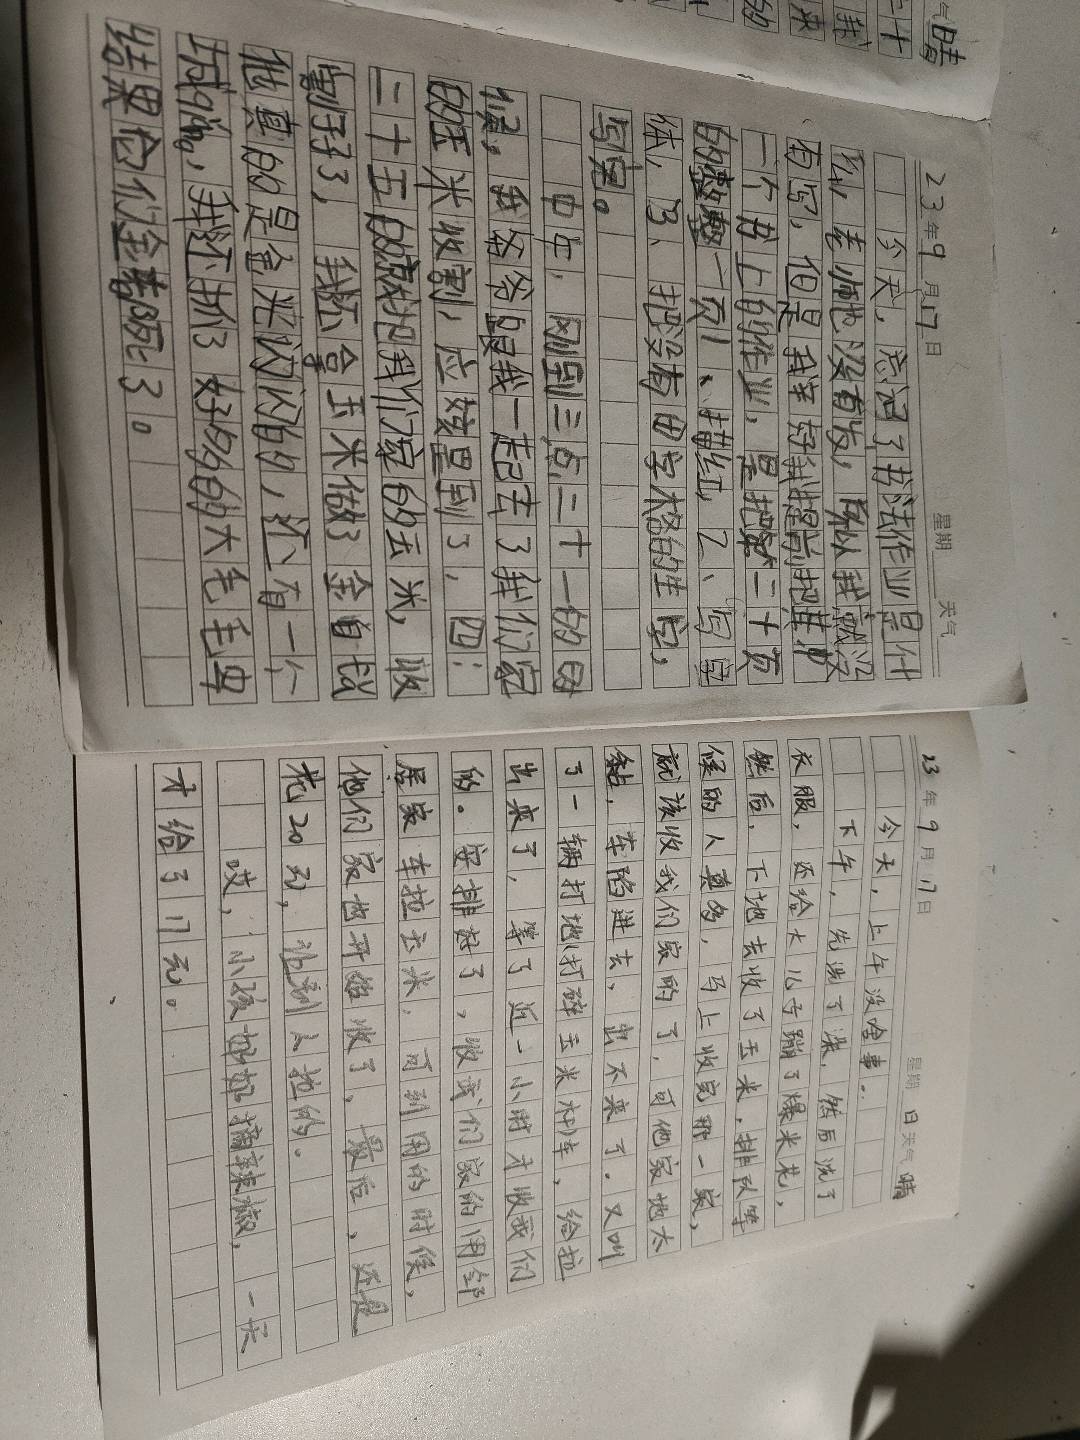 气晴
二十
我
来
的
23年9月17日 星期 天气
今天，忘记了书法作业是什
么，老师也没有发，所以我就没
有写，但是我幸好我提前把其中
一个书上的作业，是把第二十页
的整整一页1、描红，2、写字
体，3、把没有田字格的生字，
写完。
中午，刚到三点二十一的时
候，我爷爷跟我一起去了我们家
的玉米收割，应该是到了，四：
二十五的就把我们家的玉米，收
割好了，我还拿玉米做了金自战
他真的是金光闪闪的，还有一个
我还抓了好多的大毛毛虫
结果它们全都死了。
23年9月17日 星期日天气晴
今天，上午没啥事..
下午，先洗了澡，然后洗了
衣服，还给大儿子蹦了爆米花，
然后，下地去收了玉米，排队等
候的人真多，马上收完那一家，
就该收我们家的了，可他家地太
黏，车陷进去，出不来了。又叫
了一辆打地(打碎玉米杆)车，给拉
出来了，等了近一小时才收我们
的。安排好了，收我们家的用邻
居家车拉玉米，可到用的时候，
他们家也开始收了，最后，还是
花20元，让别人拉的。
哎，小孩奶奶摘辣椒，一天
才给了17元。